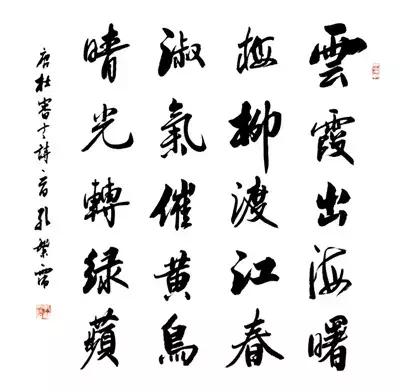 雲霞出海曙
梅柳渡江春
淑氣催黄鳥
晴光轉緑蘋
唐杜審言詩一首 孔繁